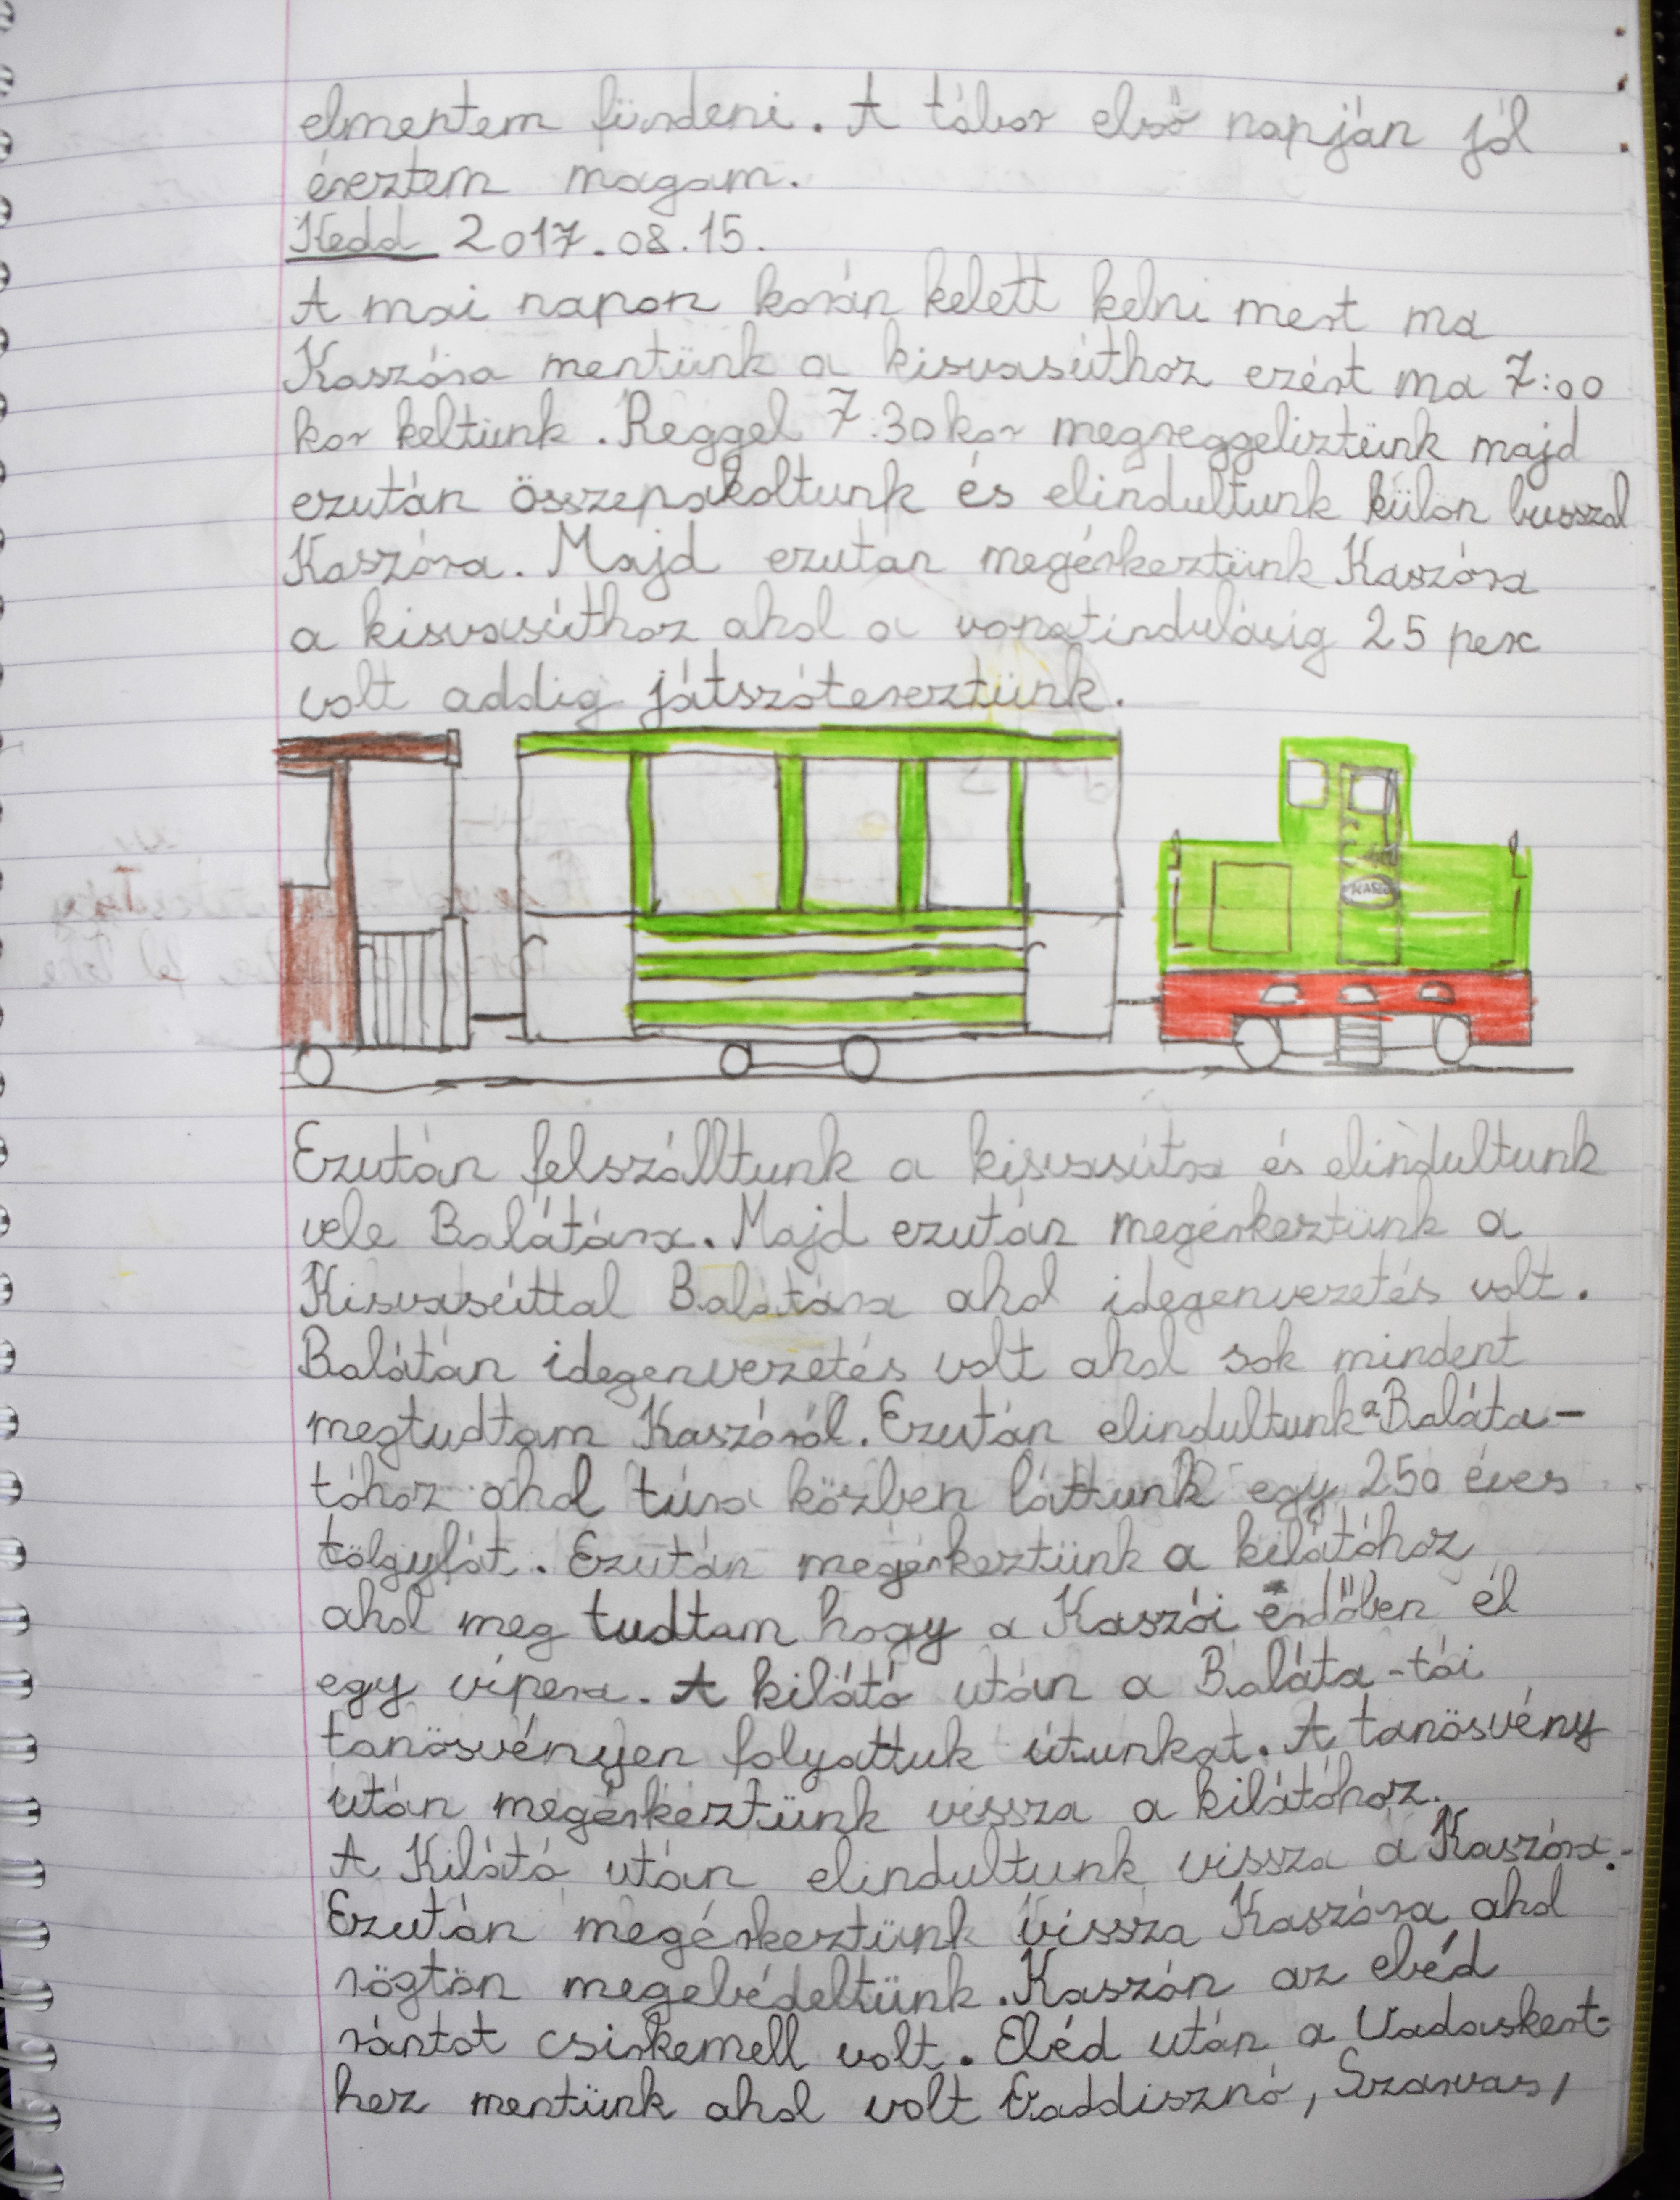 elmentem fürdeni. A tábor első napján jól
éreztem magam.
Kedd 2017.08.15.
A mai napon korán kelett kelni mert ma
Kaszóra mentünk a kisvasúthoz ezért ma 7:00
kor keltünk. Reggel 7:30kor megreggeliztünk majd
ezután összepakoltunk és elindultunk külön busszal
Kaszóra. Majd ezután megérkeztünk Kaszóra
a kisvasúthoz ahol a vonatindulásig 25 perc
volt addig játszótereztünk.
Ezután felszálltunk a kisvasútra és elindultunk
vele Balátára. Majd ezután megérkeztünk a
Kisvasúttal Balátára ahol idegenvezetés volt.
Balátán idegenvezetés volt ahol sok mindent
megtudtam Kaszóról. Ezután elindultunk a Baláta-
tóhoz ahol túra közben láttunk egy 250 éves
tölgyfát. Ezután megérkeztünk a kilátóhoz
ahol meg tudtam hogy a Kaszói erdőben él
egy vipera. A kilátó után a Baláta-tói
tanösvényen folyattuk útunkat. A tanösvény
után megérkeztünk vissza a kilátóhoz.
A Kilátó után elindultunk vissza a Kaszóra.
Ezután megérkeztünk vissza Kaszóra ahol
rögtön megebédeltünk. Kaszón az ebéd
rántot csirkemell volt. Ebéd után a Vadaskert-
hez mentünk ahol volt Vaddisznó, Szarvas,